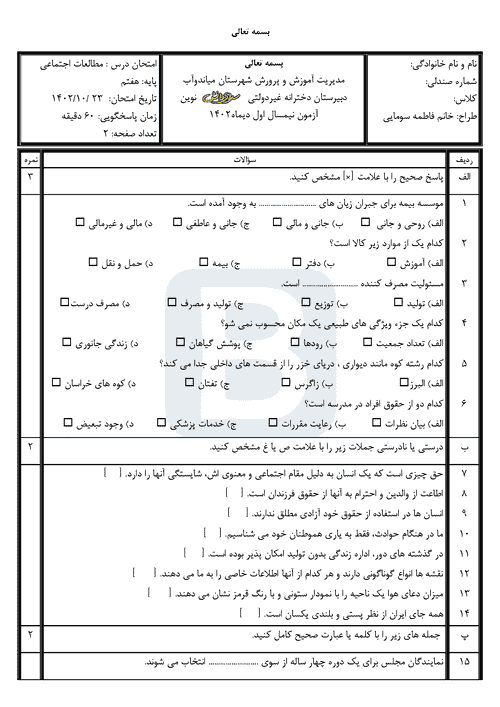 بسمه تعالی
نام و نام خانوادگی:
شماره صندلی:
کلاس:
طراح: خانم فاطمه سومایی
بسمه تعالی
مدیریت آموزش و پرورش شهرستان میاندوآب
دبیرستان دخترانه غیردولتی نوین
آزمون نیمسال اول دیماه۱۴۰۲
امتحان درس : مطالعات اجتماعی
پایه: هفتم
تاریخ امتحان: ۲۳ /۱۴۰۲/۱۰
زمان پاسخگویی: ۶۰ دقیقه
تعداد صفحه: ۲
ردیف سؤالات نمره
الف پاسخ صحیح را با علامت [×] مشخص کنید. ۳
۱ موسسه بیمه برای جبران زیان های .......................... به وجود آمده است.
الف) روحی و جانی ☐ ب) جانی و مالی ☐ ج) جانی و عاطفی ☐ د) مالی و غیرمالی ☐
۲ کدام یک از موارد زیر کالا است؟
الف) آموزش ☐ ب) دفتر ☐ ج) بیمه ☐ د) حمل و نقل ☐
۳ مسئولیت مصرف کننده ........................ است.
الف) تولید ☐ ب) توزیع ☐ ج) تولید و مصرف ☐ د) مصرف درست☐
۴ کدام یک جزء ویژگی های طبیعی یک مکان محسوب نمی شو؟
الف) تعداد جمعیت ☐ ب) رودها ☐ ج) پوشش گیاهان ☐ د) زندگی جانوری ☐
۵ کدام رشته کوه مانند دیواری ، دریای خزر را از قسمت های داخلی جدا می کند؟
الف) البرز☐ ب) زاگرس ☐ ج) تفتان ☐ د) کوه های خراسان ☐
۶ کدام دو از حقوق افراد در مدرسه است؟
الف) بیان نظرات ☐ ب) رعایت مقررات ☐ ج) خدمات پزشکی ☐ د) وجود تبعیض ☐
ب درستی یا نادرستی جملات زیر را با علامت ص یا غ مشخص کنید. ۲
۷ حق چیزی است که یک انسان به دلیل مقام اجتماعی و معنوی اش، شایستگی آنها را دارد. [ ]
۸ اطاعت از والدین و احترام به آنها از حقوق فرزندان است. [ ]
۹ انسان ها در استفاده از حقوق خود آزادی مطلق ندارند. [ ]
۱۰ ما در هنگام حوادث، فقط به یاری هموطنان خود می شناسیم. [ ]
۱۱ در گذشته های دور، اداره زندگی بدون تولید امکان پذیر بوده است. [ ]
۱۲ نقشه ها انواع گوناگونی دارند و هر کدام از آنها اطلاعات خاصی را به ما می دهند. [ ]
۱۳ میزان دعای هوا یک ناحیه را با نمودار ستونی و با رنگ قرمز نشان می دهند. [ ]
۱۴ همه جای ایران از نظر پستی و بلندی یکسان است. [ ]
پ جمله های زیر را با کلمه یا عبارت صحیح کامل کنید. ۲
۱۵ نمایندگان مجلس برای یک دوره چهار ساله از سوی ...................... انتخاب می شوند.